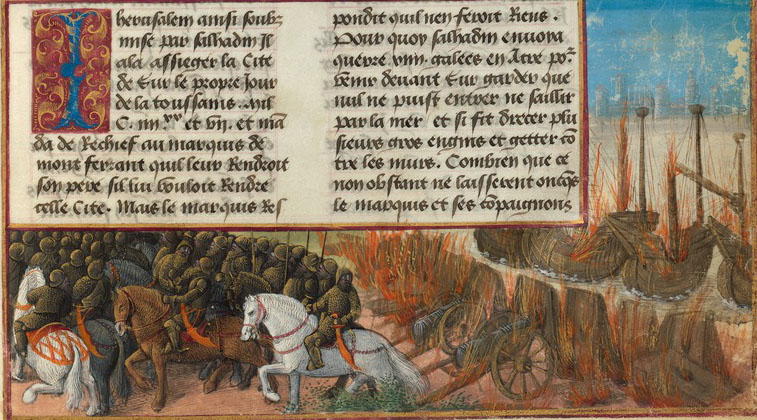 Iherusalem ainsi soubz
mise par salhadin Il
ala assieger la Cite
de Sur le propre Jour
de la toussains. Mil
C. iiii xx et vij. et mā
da de Rechief au marquis de
mont ferrant quil leur Rendroit
son pere sil lui vouloit Rendre
celle Cite. Mais le marquis Res
pondit quil nen feroit Riens.
Pour quoy salhadin envoya
querre viiij. galees en Acre por
venir devant Sur garder que
nul ne puist entrer ne saillir
par la mer et si fit drecer plu
sieurs gros engins et getter cō
tre les murs. Combien que ce
non obstant ne laisserent oncqs
le marquis et ses cōpaignons